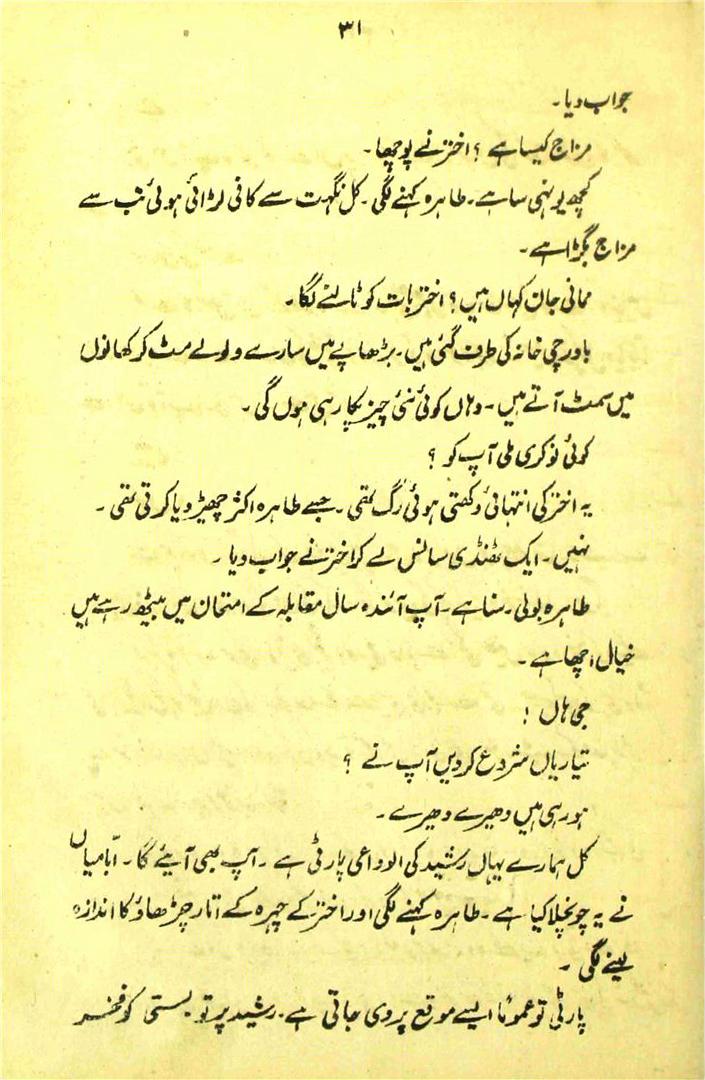 ۳۱
جواب دیا۔
مزاج کیسا ہے ؟ اختر نے پوچھا۔
کچھ یونہی سا ہے۔ طاہرہ کہنے لگی۔ کل نگہت سے کافی لڑائی ہوئی تب سے
مزاج بگڑا ہے۔
ممانی جان کہاں ہیں ؟ اختر بات کو ٹالنے لگا۔
باورچی خانہ کی طرف گئی ہیں۔ بڑھاپے میں سارے ولولے مٹ کر کھانوں
میں سمٹ آتے ہیں۔ وہاں کوئی نئی چیز پکا رہی ہوں گی۔
کوئی نوکری ملی آپ کو ؟
یہ اختر کی انتہائی دکھتی ہوئی رگ تھی۔ جسے طاہرہ اکثر چھیڑ دیا کرتی تھی۔
نہیں۔ ایک ٹھنڈی سانس لے کر اختر نے جواب دیا۔
طاہرہ بولی۔ سنا ہے۔ آپ آئندہ سال مقابلہ کے امتحان میں بیٹھ رہے ہیں
خیال اچھا ہے۔
جی ہاں !
تیاریاں شروع کر دیں آپ نے ؟
ہو رہی ہیں دھیرے دھیرے۔
کل ہمارے یہاں رشید کی الوداعی پارٹی ہے۔ آپ بھی آیئے گا۔ ابّا میاں
نے یہ چونچلا کیا ہے۔ طاہرہ کہنے لگی اور اختر کے چہرہ کے اتار چڑھاؤ کا اندازہ
لینے لگی۔
پارٹی تو عموماً ایسے موقع پر دی جاتی ہے۔ رشید پر تو بستی کو فخر